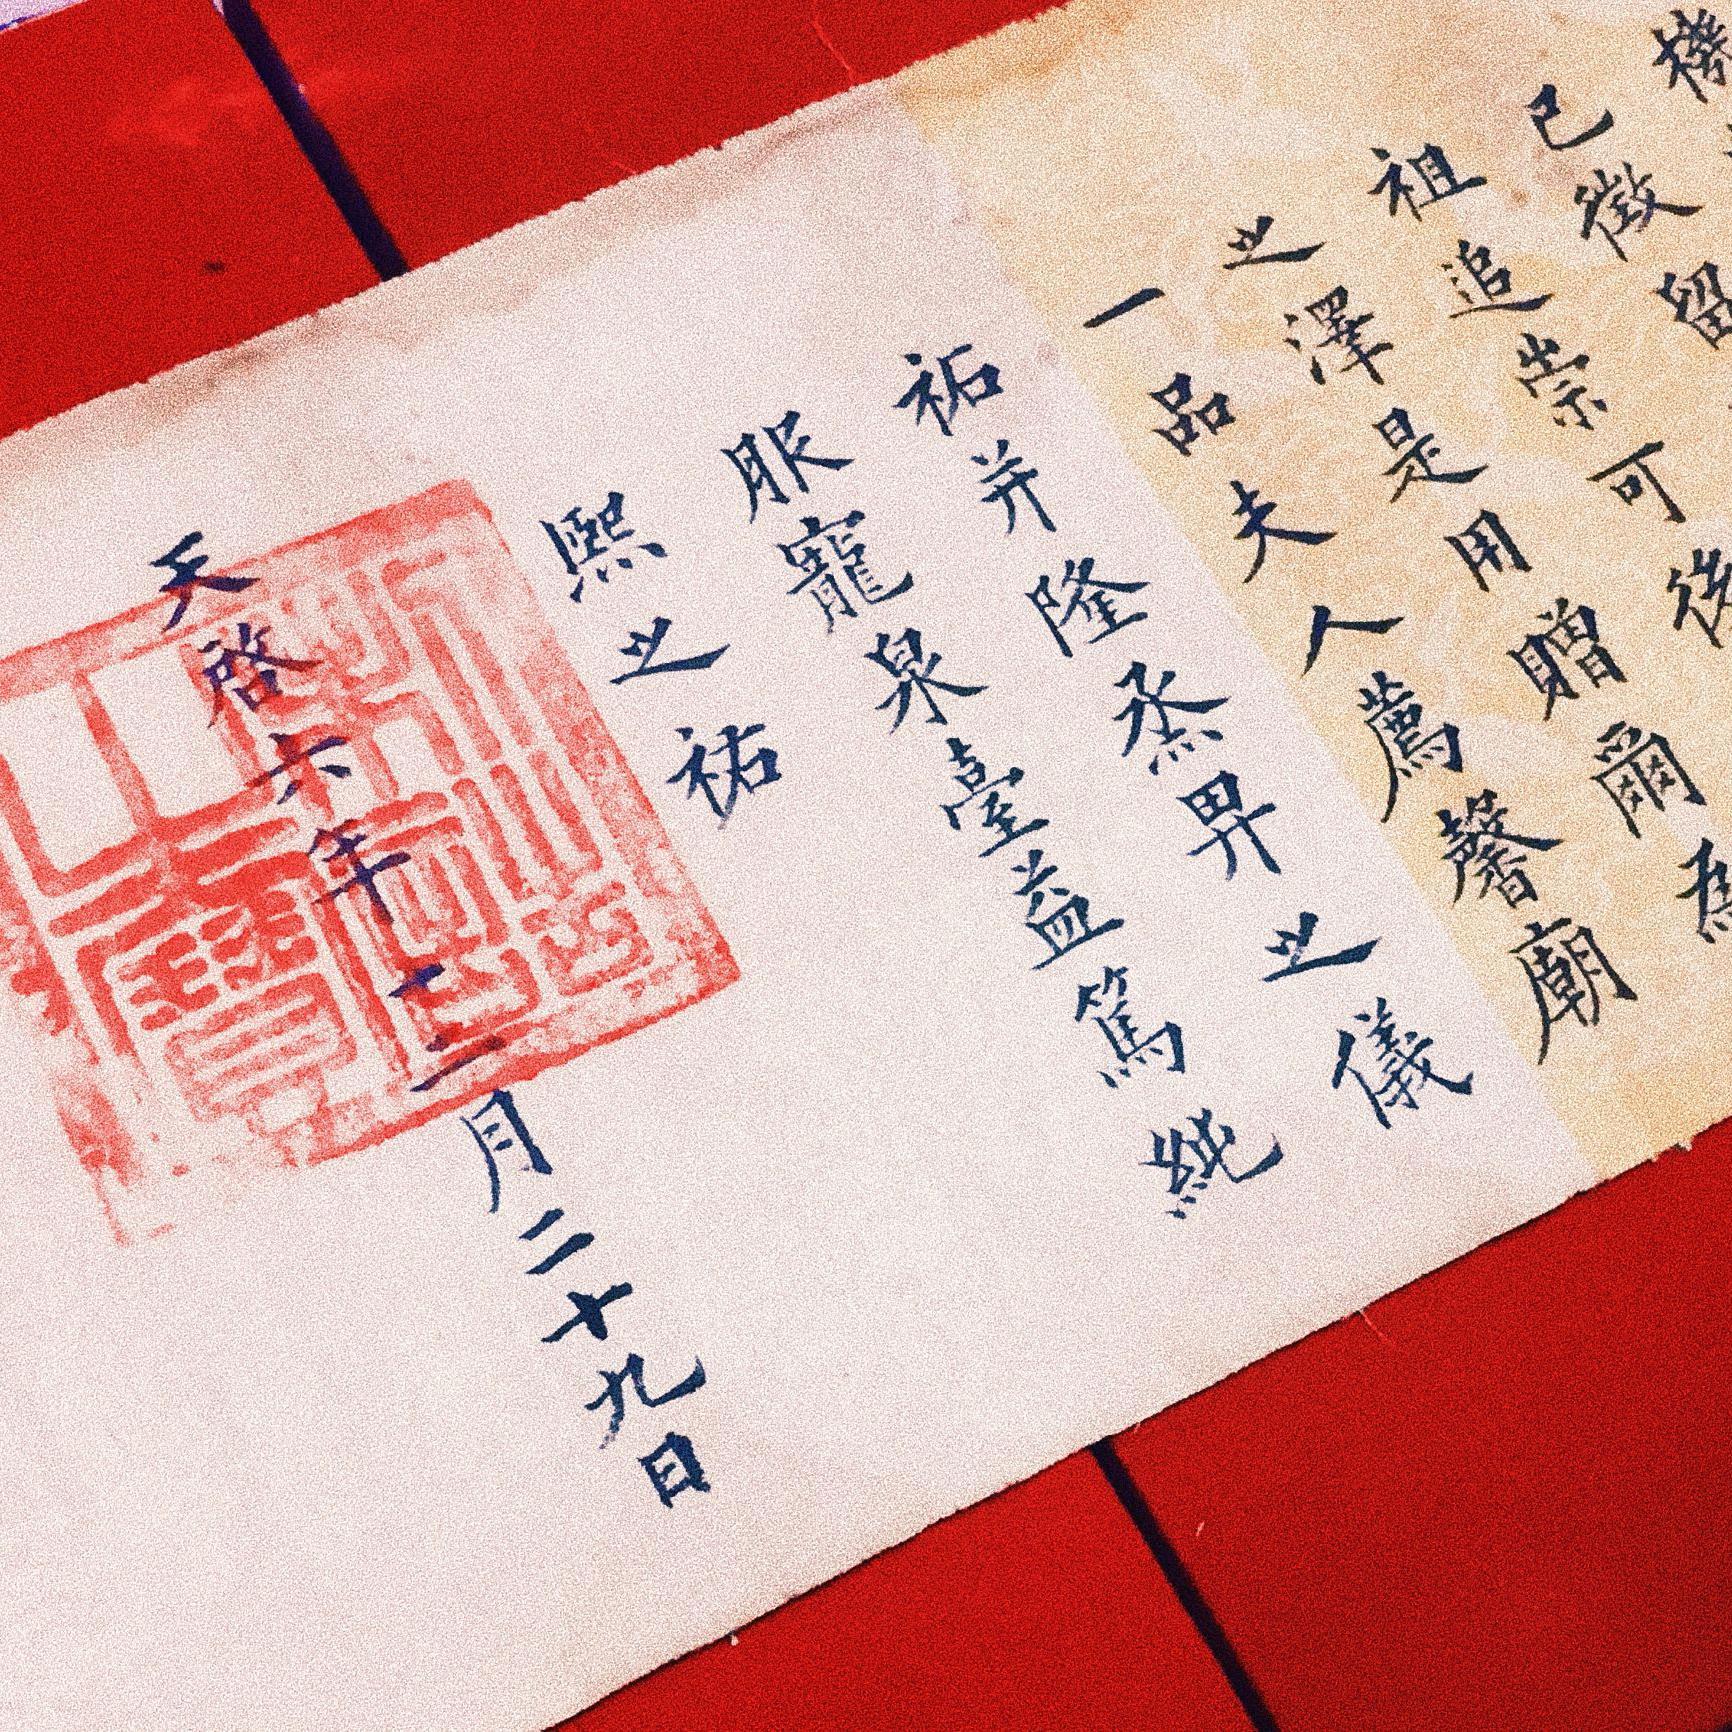 機
已徵留
祖追崇可後
之澤是用贈爾為
一品夫人薦馨廟
祏并隆烝畀之儀
服寵泉臺益篤純
熙之祐
天啓六年十二月二十九日
制誥
之寶